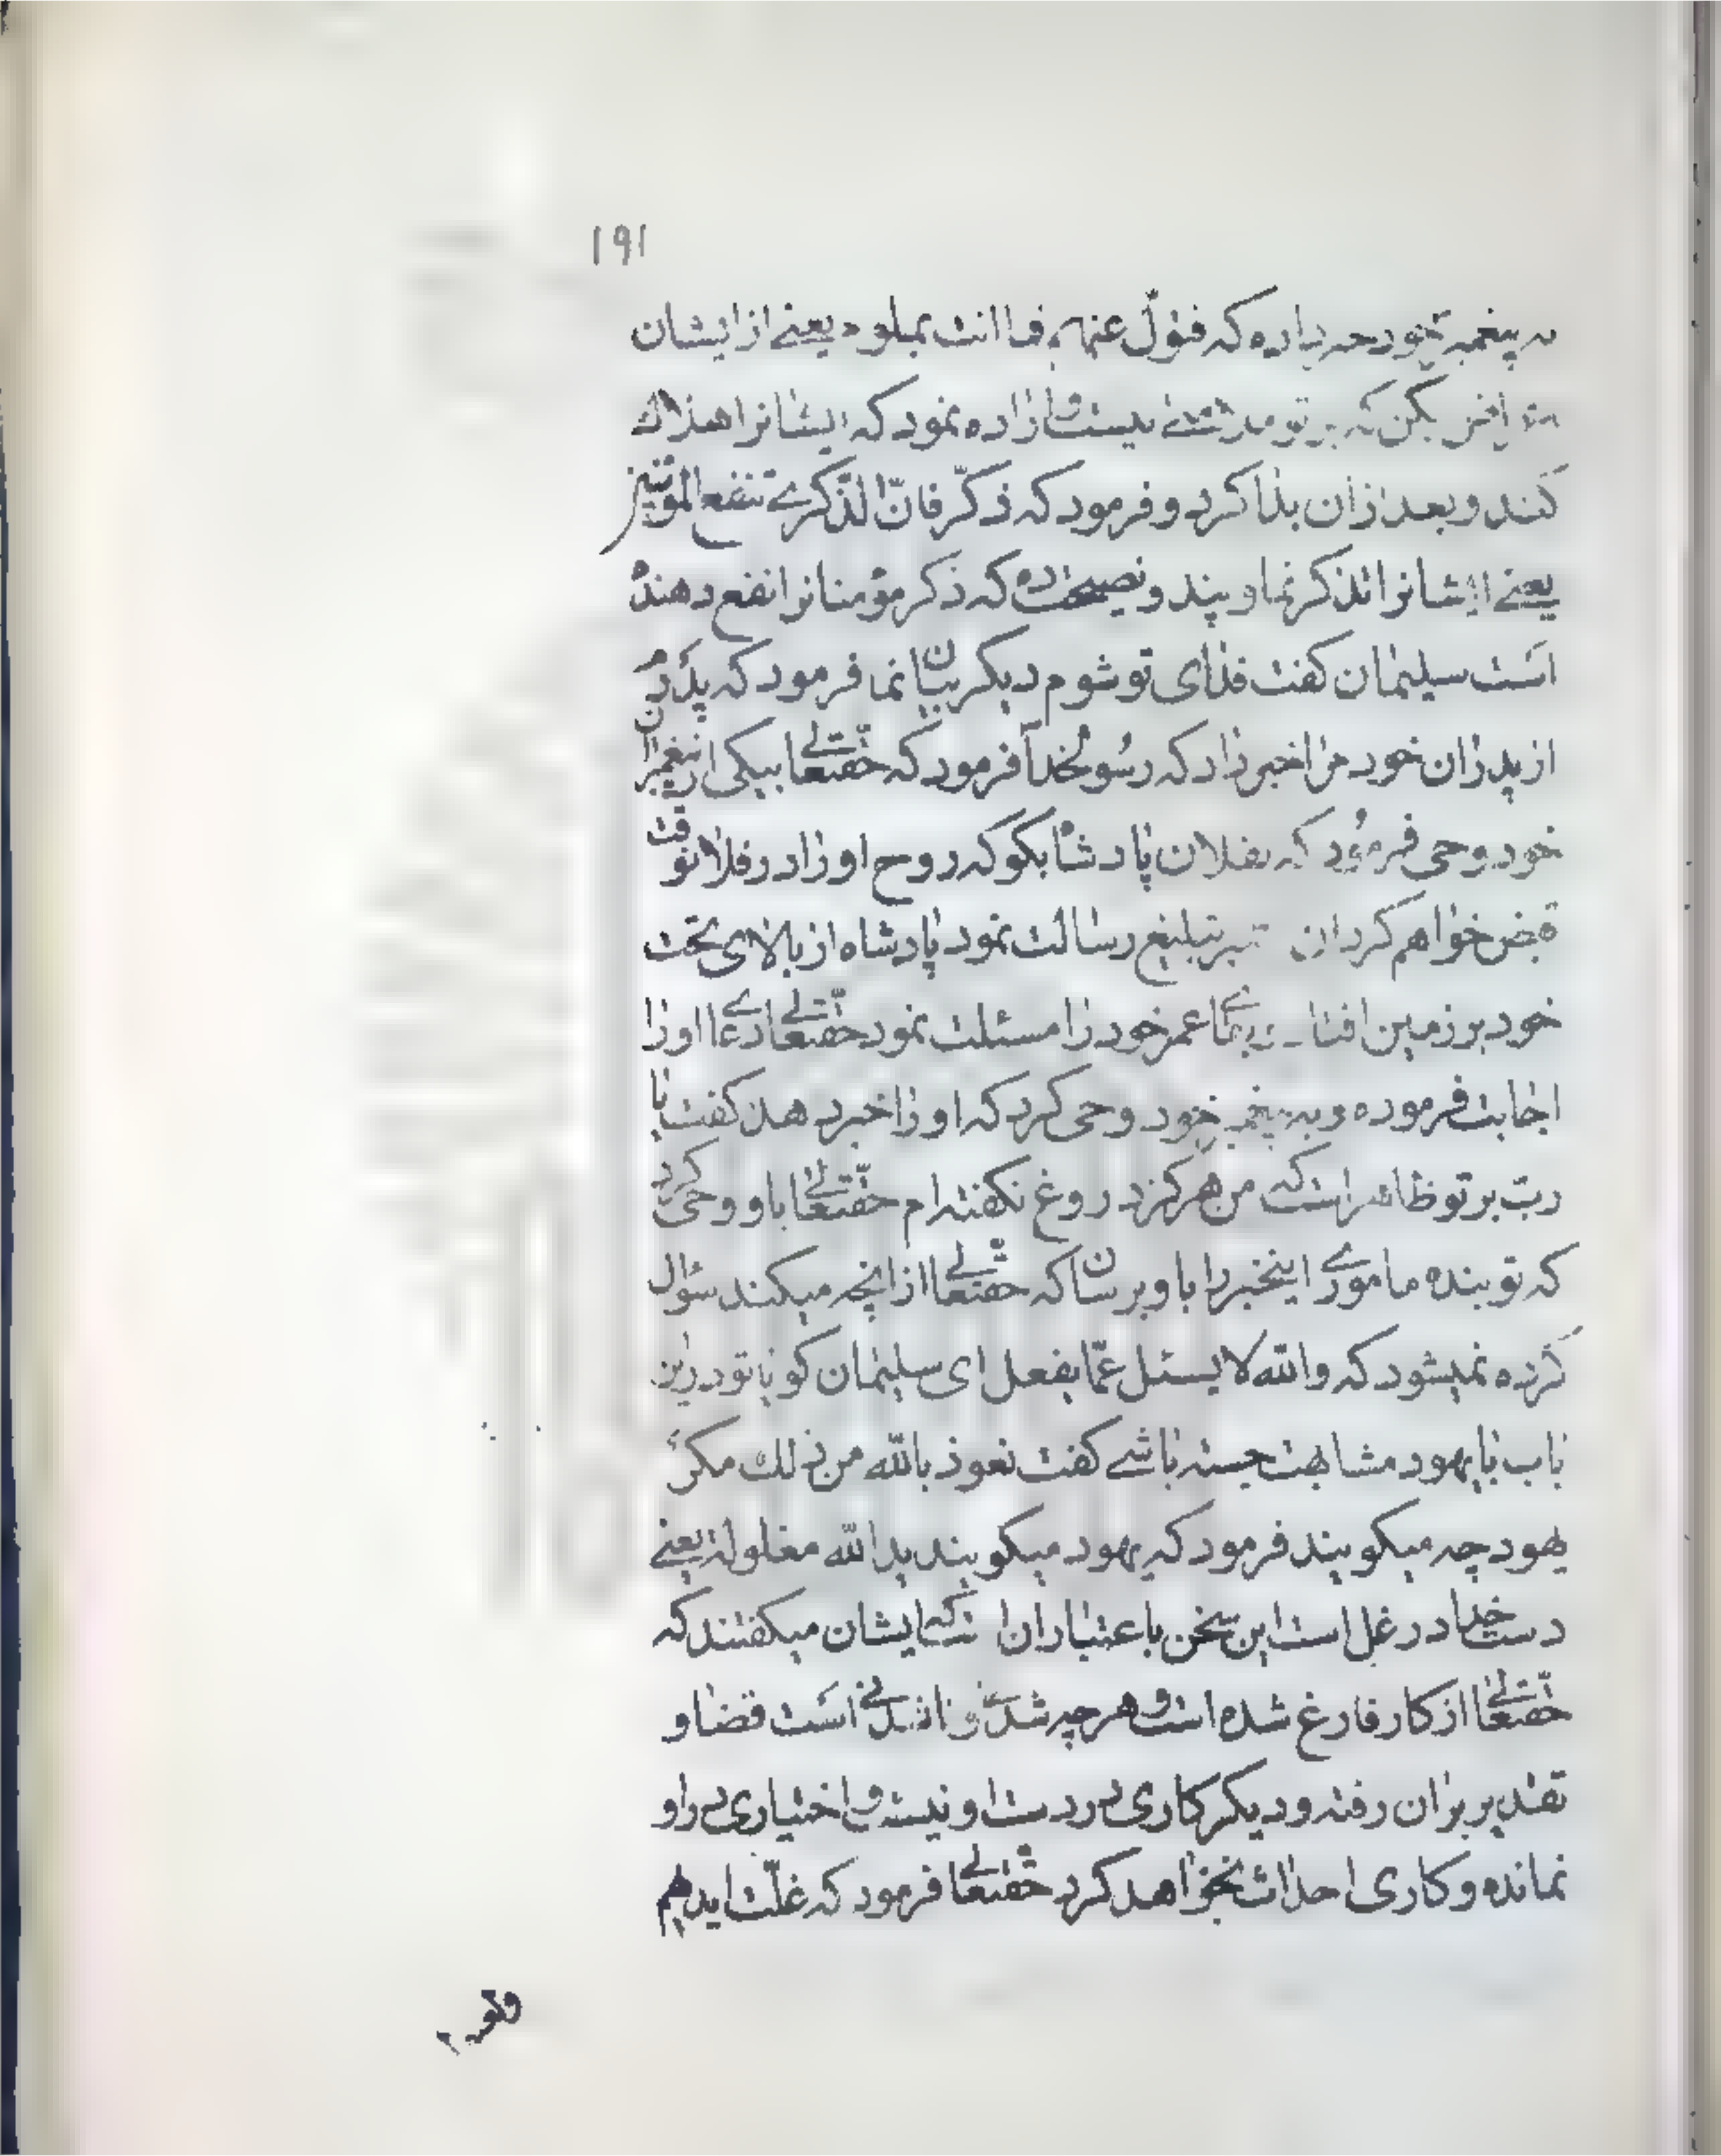 ۱۹۱
به پیغمبر خود که فتولّ عنهم فما انت بملوم یعنے از ایشان
بکن که بر تو نیست و اراده نمود که ایشانرا هلاک
کند و بعد ازان بدا کرد و فرمود که ذکّر فانّ الذّکرے تنفع المؤمنین
یعنے ایشانرا تذکر نما و پند و نصیحت ده که ذکر مؤمنانرا نفع دهنده
است سلیمان کفت فدای تو شوم دیکر بیان نما فرمود که پدرم
از پدران خود مرا خبر داد که رسولخدا فرمود که حقتعالے بیکی از پیغمبران
خود وحی فرمود که بفلان پادشاه بکو که روح او را در فلانوقت
قبض خواهم کرد ان تبلیغ رسالت نمود پادشاه از بالای تخت
خود بر زمین افتاد عمر خود را مسئلت نمود حقتعالے دعاے او را
اجابت فرموده و به پیغمبر خود وحی کرد که او را خبر دهد کفت یا
ربّ بر تو ظاهر است که من هرکز دروغ نکفته‌ام حقتعالے باو وحی کرد
که تو بنده مامورے اینخبر را باو برسان که حقتعالے از انچه میکند سؤال
کرده نمیشود که والله لا یسئل عمّا یفعل ای سلیمان کویا تو در این
باب با یهود مشابهت جسته باشے کفت نعوذ بالله من ذلك مکر
یهود چه میکویند فرمود که یهود میکویند ید الله مغلولة یعنے
دست خدا در غل است این سخن باعتبار ان که ایشان میکفتند که
حقتعالے از کار فارغ شده است و هر چه شدنے و ناشدنے است قضا و
تقدیر بران رفته و دیکر کاری در دست او نیست و اختیاری در او
نمانده و کاری احداث نخواهد کرد حقتعالے فرمود که غلّت ایدیهم